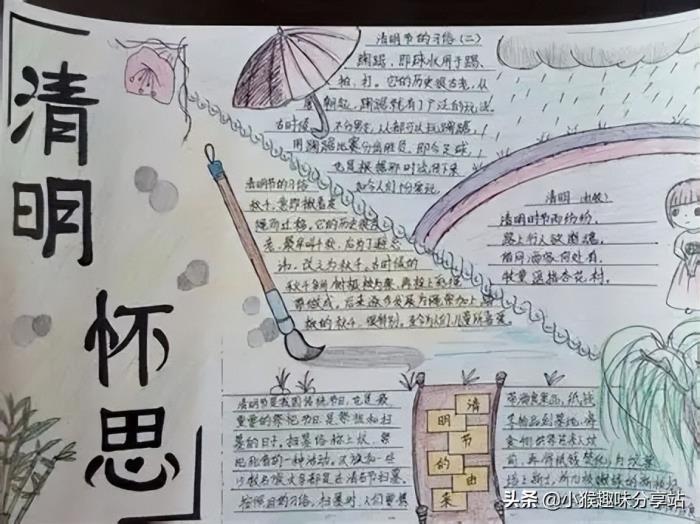 清明
怀思
清明节的习俗(二)
蹴鞠,即球,用于踢。
它的历史很古老,从
蹴鞠就有了广泛的玩法
古时候
用蹴鞠比赛分出胜负,即今足球
清明节的习俗
秋千,意即揪着皮
绳而迁移。它的历史很
老,最早叫千秋,后为了避忌
讳,改为秋千。古时候的
秋千多用树桠枝为架,再拴上彩带
做成。后来逐步发展为绳索加上踏
板的秋千,
清明
清明时节雨纷纷,
路上行人欲断魂。
借问酒家何处有,
牧童遥指杏花村。
清明节是我国传统节日,也是最
重要的祭祀节日是祭祖和扫
墓的日子。扫墓俗称上坟,祭
祀死者的一种活动。汉族和一些
少数民族大多都是在清明节扫墓。
按照旧的习俗,扫墓时,人们要携
清明节的由来
带酒食果品、纸钱
等物品到墓地,将
食物供祭在亲人坟
前,再将纸钱焚化,为坟墓
培上新土,
头条 @小猴趣味分享站